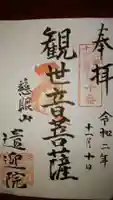 奉拝
令和二年
十一月十日
観世音菩薩
慈眼山